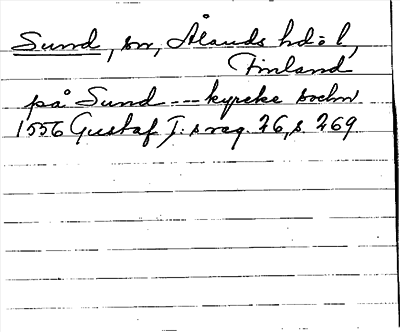 Sund, sn, Ålands hd: l,
Finland
på Sund --- kyrcke sochn
1556 Gustaf I:s reg. 26, s. 269